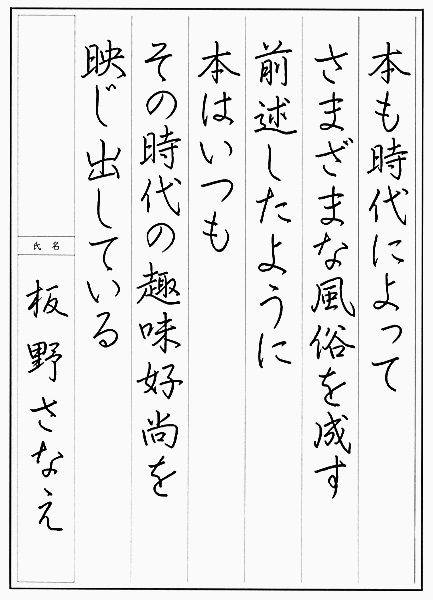 本も時代によって
さまざまな風俗を成す
前述したように
本はいつも
その時代の趣味好尚を
映じ出している
氏名
板野さなえ